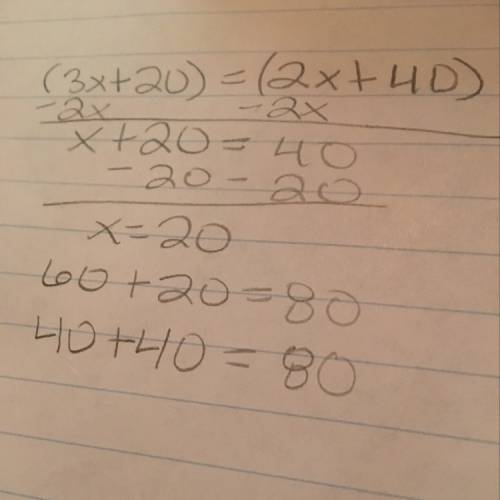 (3x+20) = (2x+40)
-2x -2x
x+20 = 40
-20 - 20
x=20
60+20=80
40+40=80